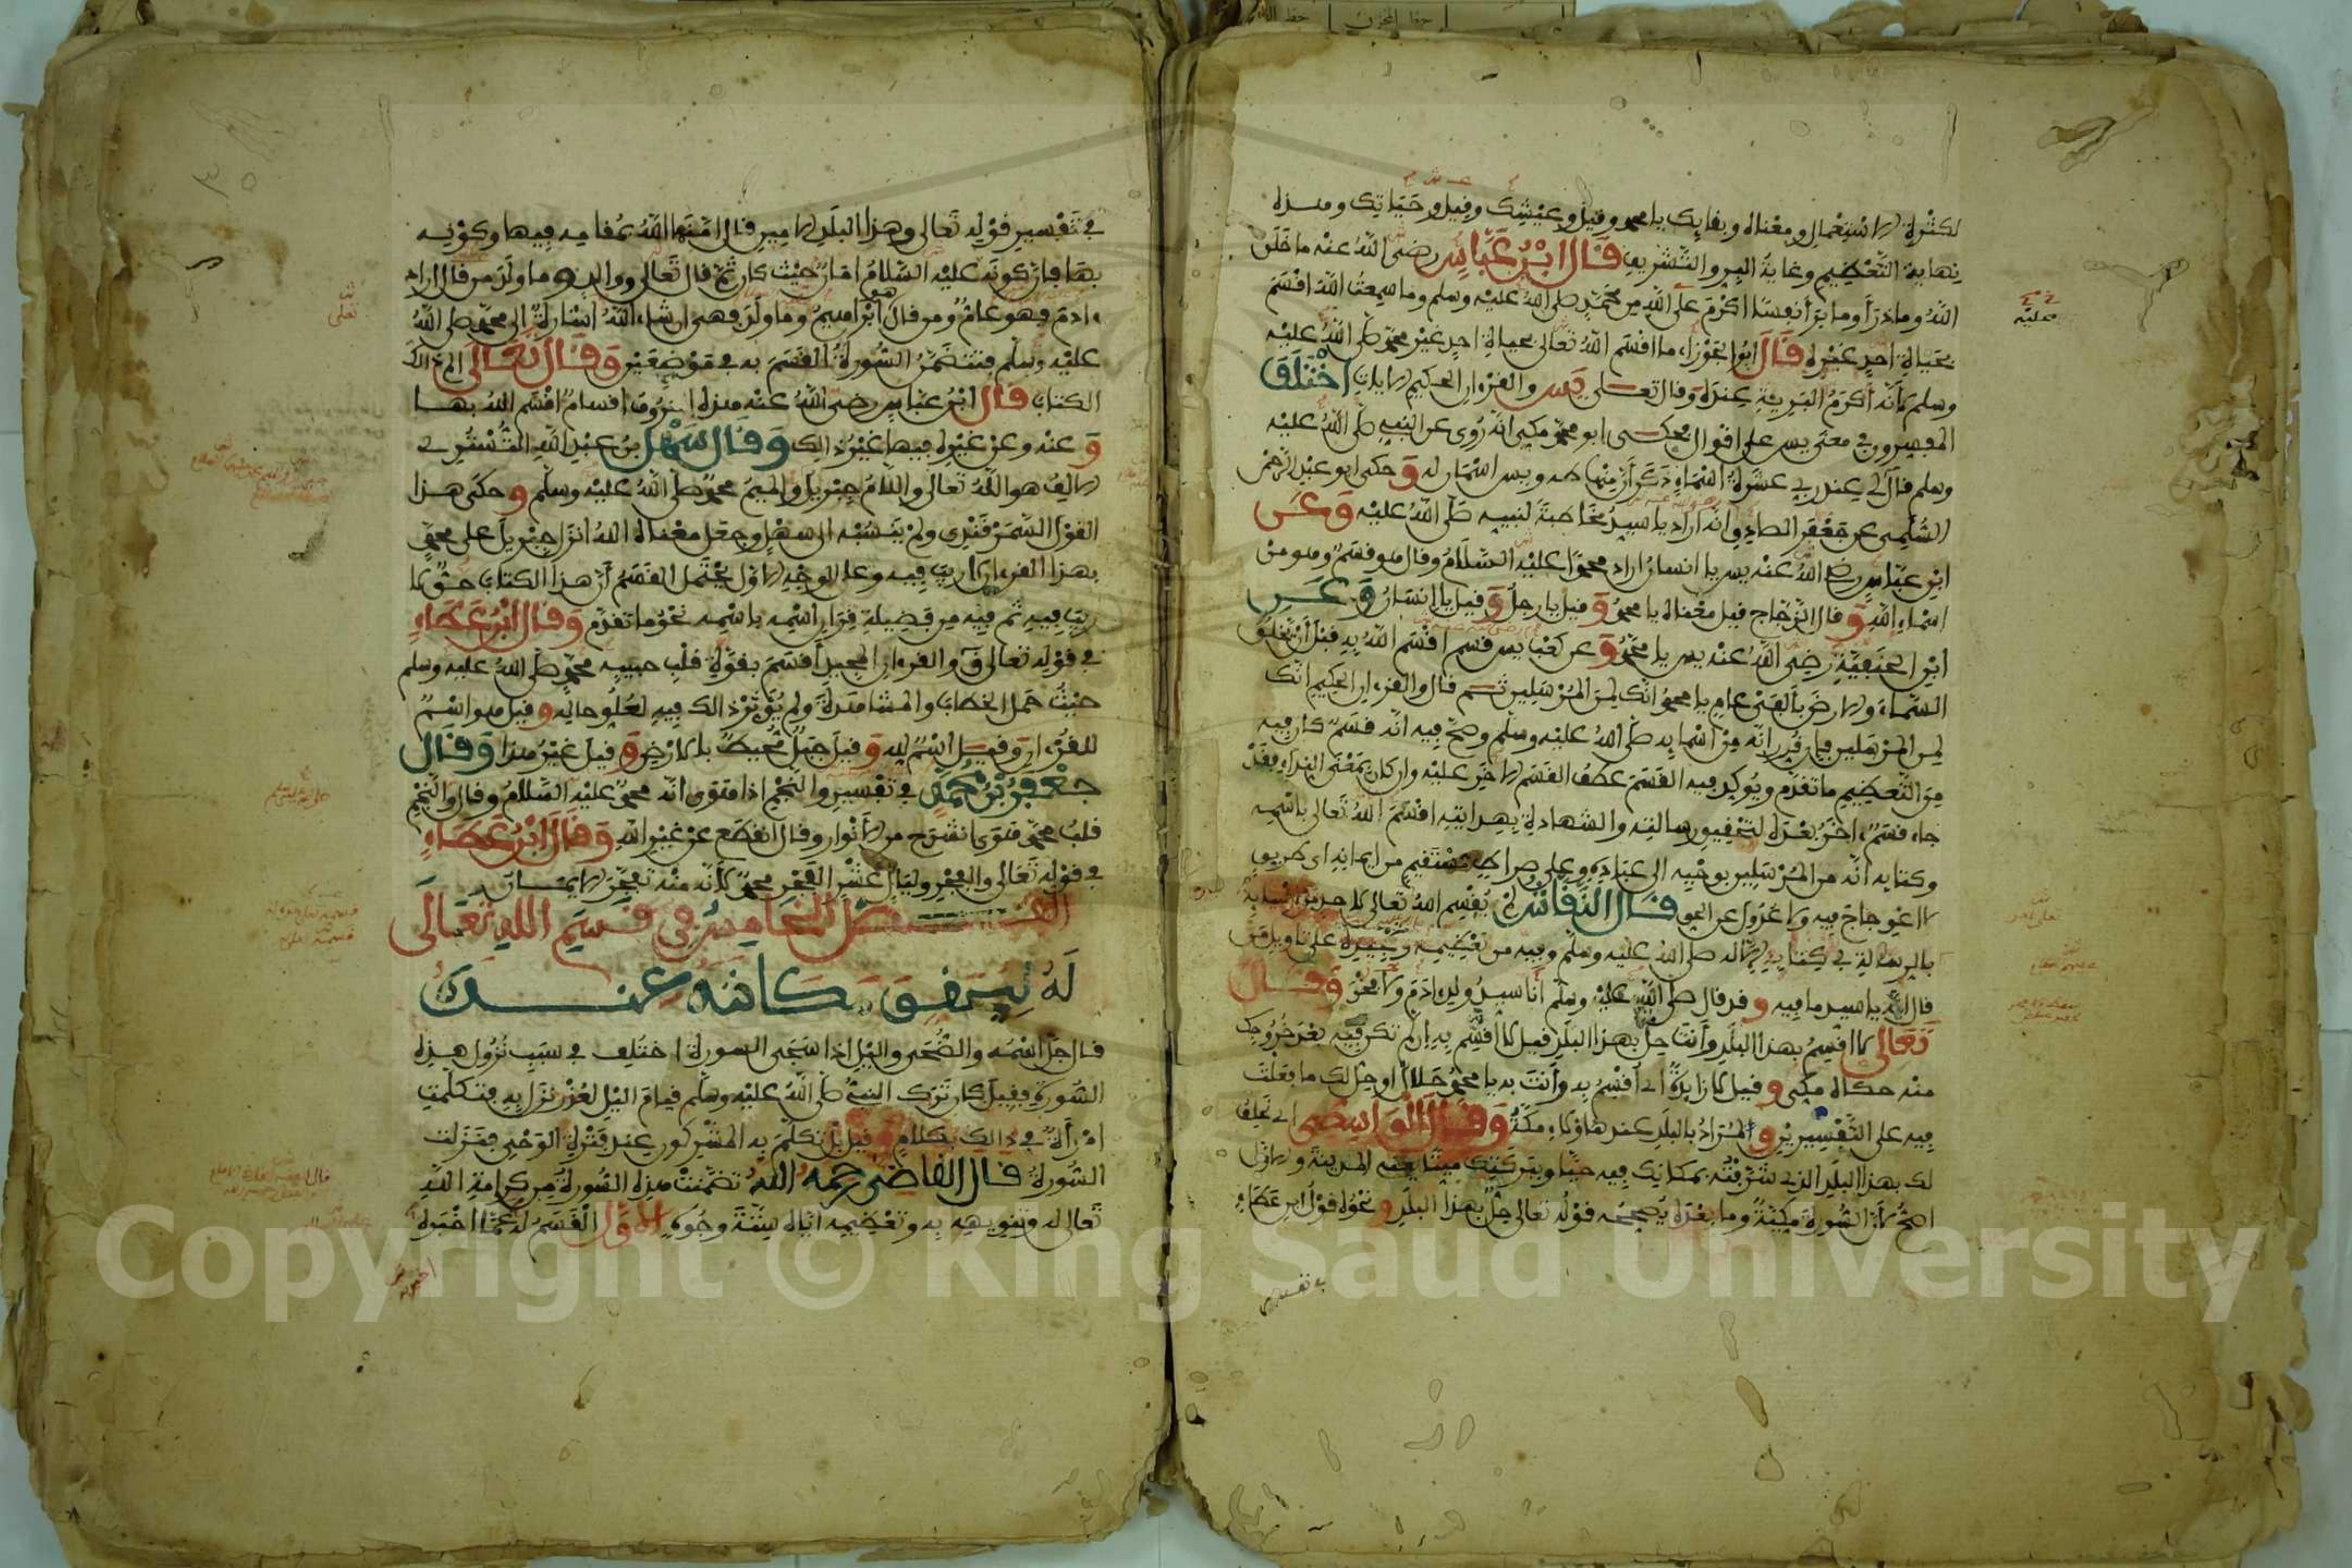 لكثرة الاستعمال ومعناه وبقايك يا محمد وقيل وعيشك وقيل وحياتك وهذه
نهاية التعظيم وغاية البر والتشريف قال ابن عباس رضي الله عنه ما خلق
الله وما ذرأ وما برأ نفسا اكرم على الله من محمد صلى الله عليه وسلم وما سمعت الله اقسم
بحياة احد غيره قال ابو الجوزاء ما اقسم الله تعالى بحياة احد غير محمد صلى الله عليه
وسلم لأنه أكرم البرية عنده وقال تعالى يس والقرءان الحكيم الايات اختلف
المفسرون في معنى يس على اقوال فحكى ابو محمد مكي انه روي عن النبي صلى الله عليه
وسلم قال لي عند ربي عشرة اسماء ذكر أن منها طه ويس اسمان له وحكى ابو عبد الرحمن
السلمي عن جعفر الصادق انه اراد يا سيد مخاطبة لنبيه صلى الله عليه وعن
ابن عباس رضي الله عنه يس يا انسان اراد محمدا عليه السلام وقال هو قسم وهو من
اسماء الله وقال الزجاج قيل معناه يا محمد وقيل يا رجل وقيل يا إنسان وعن
ابن الحنفية رضي الله عنه يس يا محمد وعن كعب يس قسم اقسم الله به قبل أن يخلق
السماء والارض بألفى عام يا محمد انك لمن المرسلين ثم قال والقرءان الحكيم انك
لمن المرسلين فإن قدر انه من اسمايه صلى الله عليه وسلم وصح فيه انه قسم كان فيه
من التعظيم ما تقدم ويوكد فيه القسم عطف القسم الاخر عليه وان كان بمعنى النداء فقد
جاء قسم ءاخر بعده لتحقيق رسالته والشهادة بهدايته اقسم الله تعالى باسمه
وكتابه انه من المرسلين بوحيه الى عباده وعلى صراط مستقيم من ايمانه اي طريق
لا اعوجاج فيه ولا عدول عن الحق قال النقاش لم يقسم الله تعالى لاحد من انبيايه
بالرسالة في كتابه إلا له صلى الله عليه وسلم وفيه من تعظيمه وتمجيده على تاويل من
قال انه يا سيد ما فيه وقد قال صلى الله عليه وسلم أنا سيد ولد ادم ولا فخر وقال
تعالى لا اقسم بهذا البلد وأنت حل بهذا البلد قيل لا أقسم به إذا لم تكن فيه بعد خروجك
منه حكاه مكي وقيل لا زايدة أي أقسم به وأنت به يا محمد حلال او حل لك ما فعلت
فيه على التفسيرين والمراد بالبلد عند هاؤلاء مكة وقال الواسطي اي نحلف
لك بهذا البلد الذي شرفته بمكانك فيه حيا وببركتك ميتا يعني المدينة والاول
اصح لأن السورة مكية وما بعده يصححه قوله تعالى حل بهذا البلد ونحوه قول ابن عطاء
في تفسير
عليه
في تفسير قوله تعالى وهذا البلد الامين قال امنها الله بمقامه فيها وكونه
بها فإن كونه عليه السلام امان حيث كان ثم قال تعالى ووالد وما ولد من قال اراد
ءادم فهو عام ومن قال هو ابراهيم وما ولد فهي ان شاء الله اشارة إلى محمد صلى الله
عليه وسلم فتتضمن السورة القسم به في موضعين وقال تعالى الم ذلك
الكتاب قال ابن عباس رضي الله عنه هذه الحروف اقسام اقسم الله بها
وعنه وعن غيره فيها غير ذلك وقال سهل بن عبد الله التستري
الالف هو الله تعالى واللام جبريل والميم محمد صلى الله عليه وسلم وحكى هذا
القول السمرقندي ولم ينسبه الى سهل وجعل معناه الله انزل جبريل على محمد
بهذا القرءان لا ريب فيه وعلى الوجه الاول يحتمل القسم أن هذا الكتاب حق لا
ريب فيه ثم فيه من فضيلة قران اسمه باسمه نحو ما تقدم وقال ابن عطاء
في قوله تعالى ق والقرءان المجيد أقسم بقوة قلب حبيبه محمد صلى الله عليه وسلم
حيث حمل الخطاب والمشاهدة ولم يؤثر ذالك فيه لعلو حاله وقيل هو اسم
للقرءان وقيل اسم لله وقيل جبل محيط بالارض وقيل غير هذا وقال
جعفر بن محمد في تفسير والنجم اذا هوى انه محمد عليه السلام وقال والنجم
قلب محمد هوى انشرح من الأنوار وقال انقطع عن غير الله وقال ابن عطاء
في قوله تعالى والفجر وليال عشر الفجر محمد لأنه منه تفجر الايمان
الفصل الخامس في قسم الله تعالى
له ليحقق مكانته عنده
قال جل اسمه والضحى واليل اذا سجى السورة اختلف في سبب نزول هذه
السورة فقيل كان ترك النبي صلى الله عليه وسلم قيام اليل لعذر نزل به فتكلمت
امرأة في ذالك بكلام وقيل بل تكلم به المشركون عند فترة الوحي فنزلت
السورة قال القاضي رحمه الله تضمنت هذه السورة من كرامة الله
تعالى له وتنويهه به وتعظيمه اياه ستة وجوه الاول القسم له عما اخبره
تعلى
Copyright © King Saud University